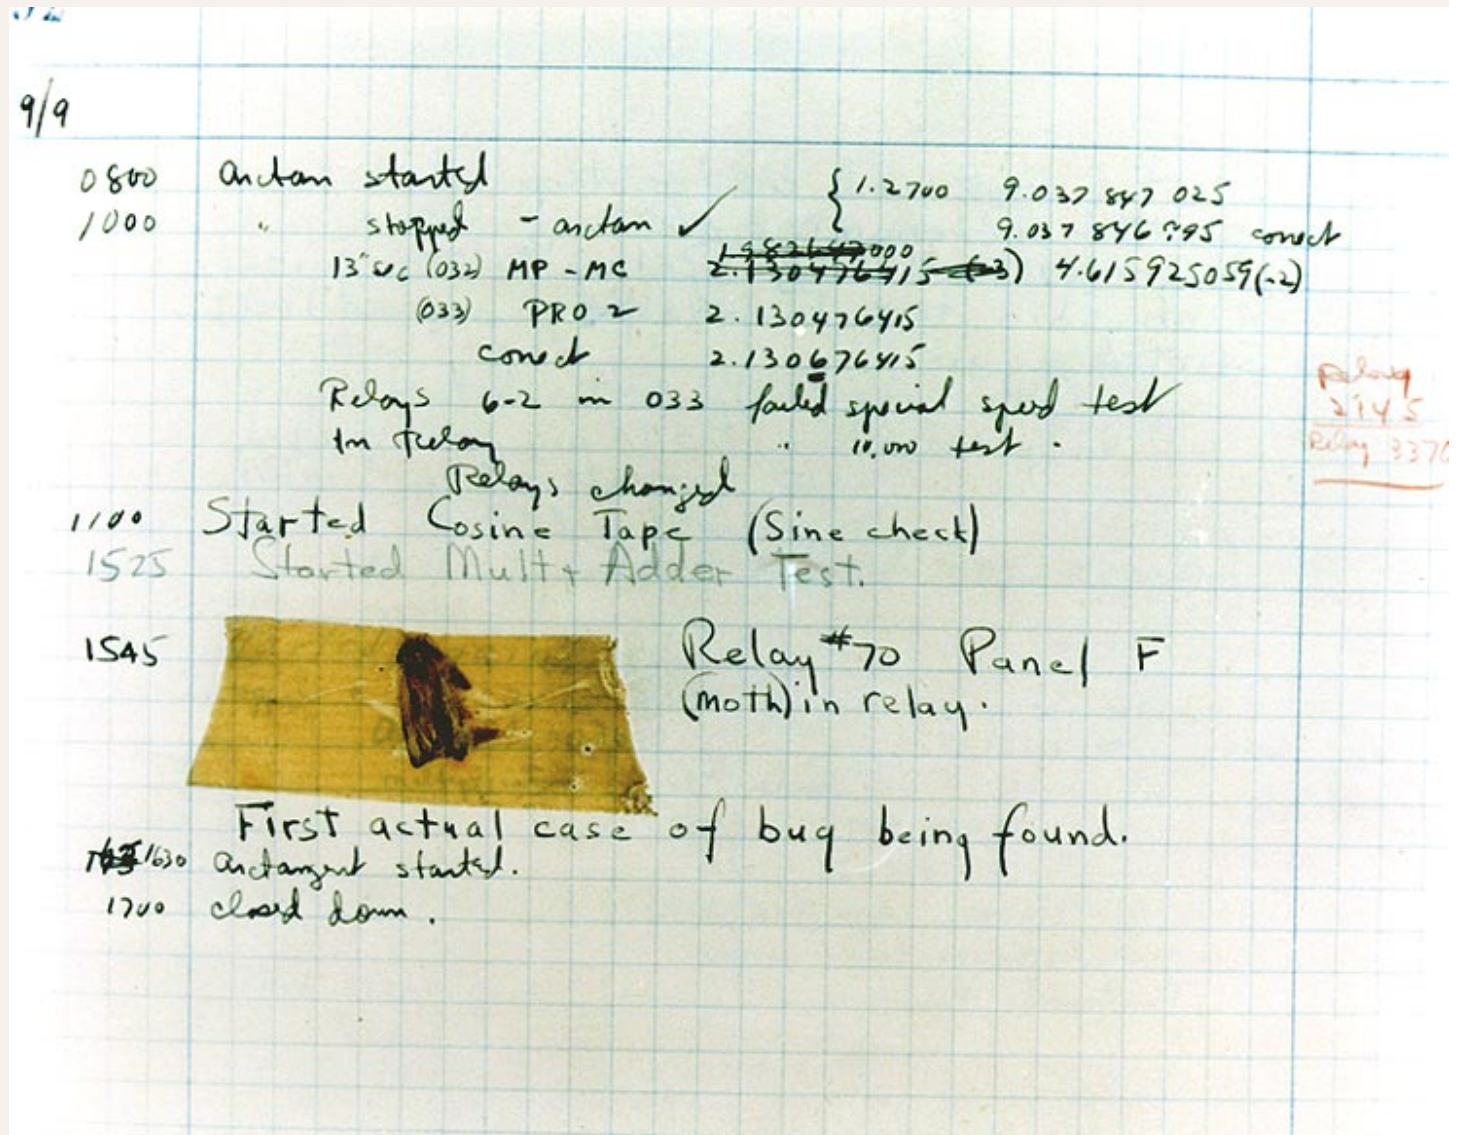 9/9
0800 Arctan started { 1.2700 9.037 847 025
1000 " stopped - arctan ✓ 9.037 846 995 correct
13" sec (032) MP - MC 2.130476415 (-3) 4.615925059(-2)
(033) PRO 2 2.130476415
correct 2.130676415
Relays 6-2 in 033 failed special speed test
In Relay " 10,000 test .
Relays changed
Relay
2145
Relay 3370
1100 Started Cosine Tape (Sine check)
1525 Started Mult + Adder Test.
1545 Relay #70 Panel F
(moth) in relay.
First actual case of bug being found.
1630 arctangent started.
1700 closed down .